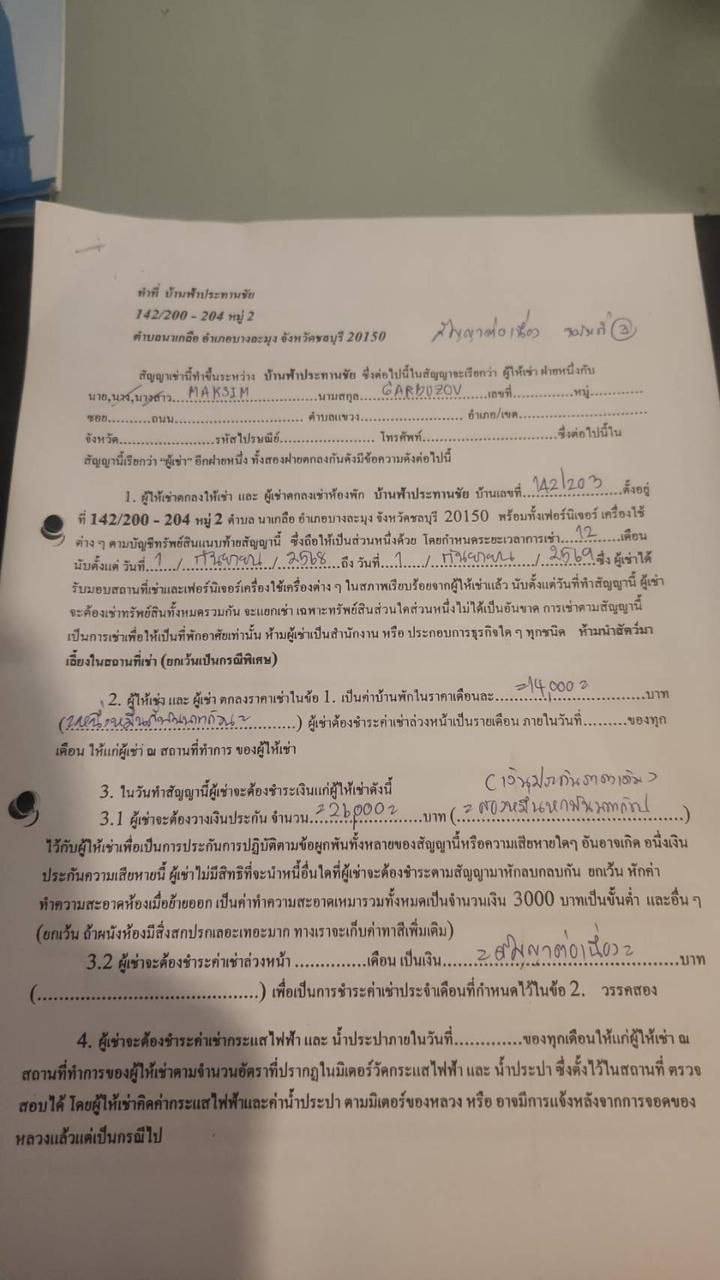 ทำที่ บ้านฟ้าประทานชัย
142/200 - 204 หมู่ 2
ตำบลนาเกลือ อำเภอบางละมุง จังหวัดชลบุรี 20150
สัญญาต่อเนื่อง ฉบับที่ ③
สัญญาเช่านี้ทำขึ้นระหว่าง บ้านฟ้าประทานชัย ซึ่งต่อไปนี้ในสัญญาจะเรียกว่า ผู้ให้เช่า ฝ่ายหนึ่งกับ
นาย,นาง,นางสาว....MAKSIM....นามสกุล....GARBUZOV....เลขที่...............หมู่.............
ซอย..........ถนน................................ ตำบล/แขวง........................ อำเภอ/เขต...............................
จังหวัด......................รหัสไปรษณีย์...................... โทรศัพท์................................ซึ่งต่อไปนี้ใน
สัญญานี้เรียกว่า "ผู้เช่า" อีกฝ่ายหนึ่ง ทั้งสองฝ่ายตกลงกันดังมีข้อความดังต่อไปนี้
1. ผู้ให้เช่าตกลงให้เช่า และ ผู้เช่าตกลงเช่าห้องพัก บ้านฟ้าประทานชัย บ้านเลขที่...142/203...ตั้งอยู่
ที่ 142/200 - 204 หมู่ 2 ตำบล นาเกลือ อำเภอบางละมุง จังหวัดชลบุรี 20150 พร้อมทั้งเฟอร์นิเจอร์ เครื่องใช้
ต่าง ๆ ตามบัญชีทรัพย์สินแนบท้ายสัญญานี้ ซึ่งถือให้เป็นส่วนหนึ่งด้วย โดยกำหนดระยะเวลาการเช่า...12...เดือน
นับตั้งแต่ วันที่...1.../...กันยายน.../...2568...ถึง วันที่...1.../...กันยายน.../...2569...ซึ่ง ผู้เช่าได้
รับมอบสถานที่เช่าและเฟอร์นิเจอร์เครื่องใช้เครื่องต่าง ๆ ในสภาพเรียบร้อยจากผู้ให้เช่าแล้ว นับตั้งแต่วันที่ทำสัญญานี้ ผู้เช่า
จะต้องเช่าทรัพย์สินทั้งหมดรวมกัน จะแยกเช่า เฉพาะทรัพย์สินส่วนใดส่วนหนึ่งไม่ได้เป็นอันขาด การเช่าตามสัญญานี้
เป็นการเช่าเพื่อให้เป็นที่พักอาศัยเท่านั้น ห้ามผู้เช่าเป็นสำนักงาน หรือ ประกอบการธุรกิจใด ๆ ทุกชนิด ห้ามนำสัตว์มา
เลี้ยงในสถานที่เช่า (ยกเว้นเป็นกรณีพิเศษ)
2. ผู้ให้เช่า และ ผู้เช่า ตกลงราคาเช่าในข้อ 1. เป็นค่าบ้านพักในราคาเดือนละ...=14,000=...บาท
(...=หนึ่งหมื่นสี่พันบาทถ้วน=...) ผู้เช่าต้องชำระค่าเช่าล่วงหน้าเป็นรายเดือน ภายในวันที่.........ของทุก
เดือน ให้แก่ผู้เช่า ณ สถานที่ทำการ ของผู้ให้เช่า
3. ในวันทำสัญญานี้ผู้เช่าจะต้องชำระเงินแก่ผู้ให้เช่าดังนี้
(เงินประกันราคาเดิม)
3.1 ผู้เช่าจะต้องวางเงินประกัน จำนวน...=26,000=...บาท (...=สองหมื่นหกพันบาทถ้วน...)
ไว้กับผู้ให้เช่าเพื่อเป็นการประกันการปฏิบัติตามข้อผูกพันทั้งหลายของสัญญานี้หรือความเสียหายใดๆ อันอาจเกิด อนึ่งเงิน
ประกันความเสียหายนี้ ผู้เช่าไม่มีสิทธิที่จะนำหนี้อื่นใดที่ผู้เช่าจะต้องชำระตามสัญญามาหักลบกลบกัน ยกเว้น หักค่า
ทำความสะอาดห้องเมื่อย้ายออก เป็นค่าทำความสะอาดเหมารวมทั้งหมดเป็นจำนวนเงิน 3000 บาทเป็นขั้นต่ำ และอื่น ๆ
(ยกเว้น ถ้าผนังห้องมีสิ่งสกปรกเลอะเทอะมาก ทางเราจะเก็บค่าทาสีเพิ่มเติม)
3.2 ผู้เช่าจะต้องชำระค่าเช่าล่วงหน้า ..............เดือน เป็นเงิน...=สัญญาต่อเนื่อง=...บาท
(..........................................) เพื่อเป็นการชำระค่าเช่าประจำเดือนที่กำหนดไว้ในข้อ 2. วรรคสอง
4. ผู้เช่าจะต้องชำระค่าเช่ากระแสไฟฟ้า และ น้ำประปาภายในวันที่.............ของทุกเดือนให้แก่ผู้ให้เช่า ณ
สถานที่ทำการของผู้ให้เช่าตามจำนวนอัตราที่ปรากฏในมิเตอร์วัดกระแสไฟฟ้า และ น้ำประปา ซึ่งตั้งไว้ในสถานที่ ตรวจ
สอบได้ โดยผู้ให้เช่าคิดค่ากระแสไฟฟ้าและค่าน้ำประปา ตามมิเตอร์ของหลวง หรือ อาจมีการแจ้งหลังจากการจดของ
หลวงแล้วแต่เป็นกรณีไป